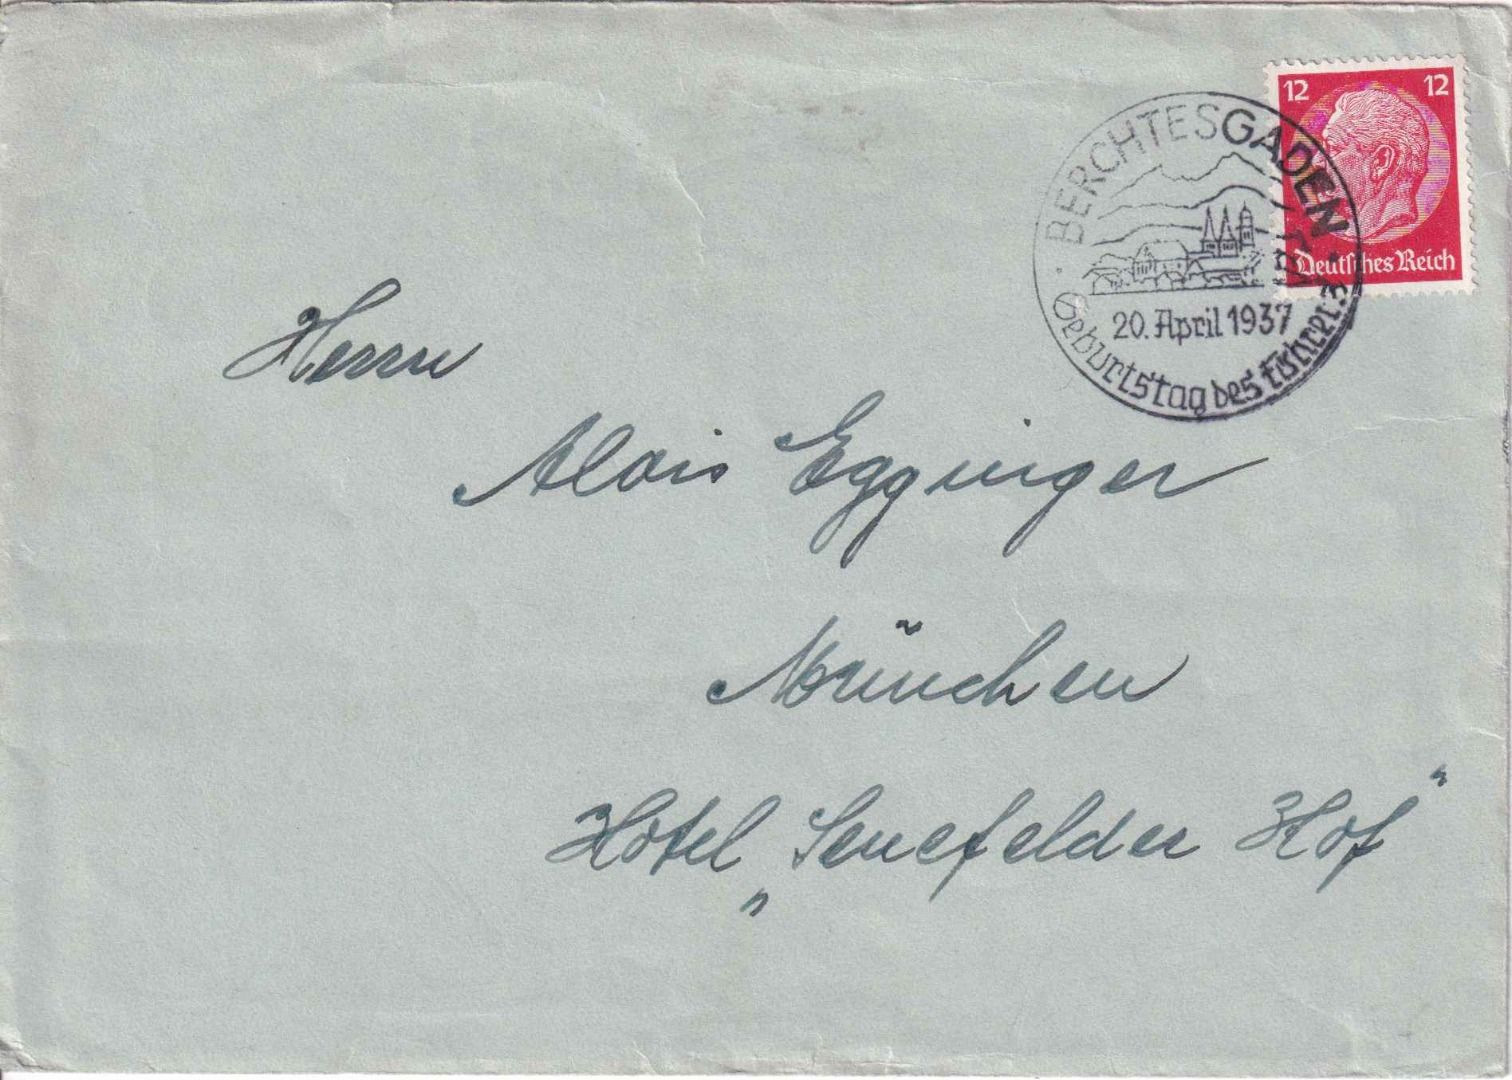 12 12
Deutsches Reich
BERCHTESGADEN
20. April 1937
Geburtstag des Führers
Herrn
Alois Egginger
München
Hotel „Senefelder Hof"